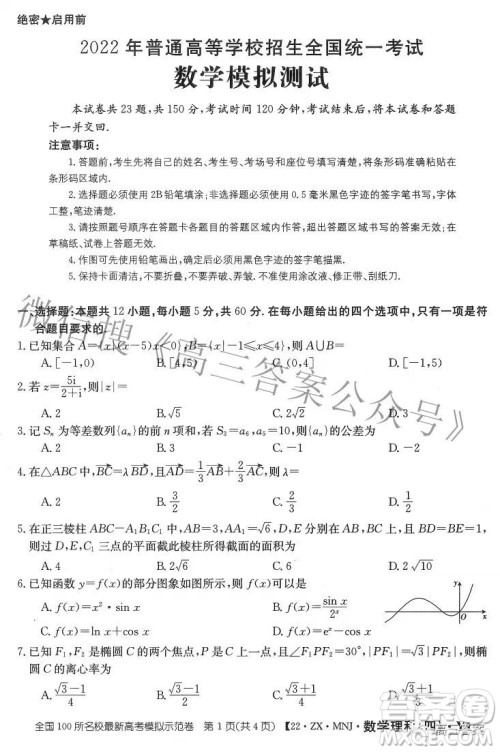 绝密★启用前
2022 年普通高等学校招生全国统一考试
数学模拟测试
本试卷共 23 题,共 150 分,考试时间 120 分钟,考试结束后,将本试卷和答题
卡一并交回.
注意事项:
1.答题前,考生先将自己的姓名、考生号、考场号和座位号填写清楚,将条形码准确粘贴在
条形码区域内.
2.选择题必须使用 2B 铅笔填涂;非选择题必须使用 0.5 毫米黑色字迹的签字笔书写,字体
工整、笔迹清楚.
3.请按照题号顺序在答题卡各题目的答题区域内作答,超出答题区域书写的答案无效;在
草稿纸、试卷上答题无效.
4.作图可先使用铅笔画出,确定后必须用黑色字迹的签字笔描黑.
5.保持卡面清洁,不要折叠,不要弄破、弄皱,不准使用涂改液、修正带、刮纸刀.
一、选择题:本题共 12 小题,每小题 5 分,共 60 分.在每小题给出的四个选项中,只有一项是符
合题目要求的.
1.已知集合 A={x|x(x-5)x<0},B={x|-1≤x≤4},则 A∪B=
A.[-1,0) B.[4,5) C.(0,4] D.[-1,5)
2.若 z=5i/(2+i),则|z|=
A.2 B.√5 C.2√2 D.3
3.记 Sₙ 为等差数列{aₙ}的前 n 项和,若 S₃=a₆,a₆=10,则{aₙ}的公差为
A.2 B.√2 C.-1 D.-2
4.在△ABC 中,BC=λBD,且AD=1/3AB+2/3AC,则 λ=
A.2 B.3/2 C.2/3 D.1/2
5.在正三棱柱 ABC-A₁B₁C₁ 中,AB=3,AA₁=√6,D,E 分别在 AB,BC 上,且 BD=BE=1,
则过 D,E,C₁ 三点的平面截此棱柱所得截面的面积为
A.4 B.2√6 C.6 D.2√10
6.已知函数 y=f(x)的部分图象如图所示,则 f(x)可以是
A.f(x)=x²·sin x B.f(x)=sin x/2ˣ
C.f(x)=ln x+cos x D.f(x)=eˣ-cos x
y
O
x
7.已知 F₁,F₂ 是椭圆 C 的两个焦点,P 是 C 上一点,且∠F₁PF₂=30°,|PF₁|=√3|PF₂|,则 C
的离心率为
A.(√3-1)/4 B.(√3+1)/4 C.(√3-1)/2
全国 100 所名校最新高考模拟示范卷 第 1 页(共 4 页) 【22·ZX·MNJ·数学理科
微信搜《高三答案公众号》